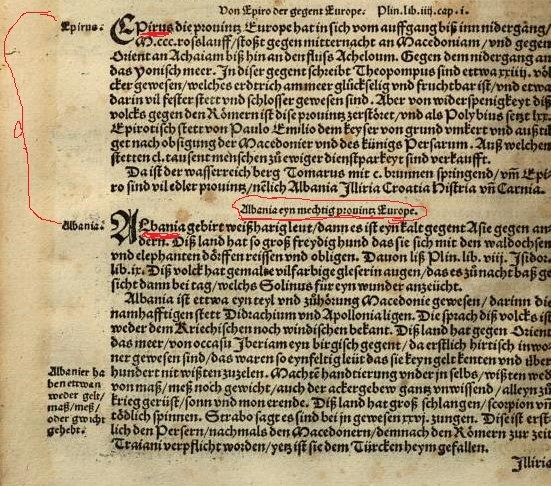 Von Epiro der gegent Europe. Plin.lib.iiij.cap.i.
Epirus.
EPirus die prouintz Europe hat in sich vom auffgang biß inn nidergäng/
M.ccc.rosslauff/stoßt gegen mitternacht an Macedoniam/vnd gegen
Orient an Achaiam biß hin an den fluss Acheloum. Gegen dem nidergang an
das Yonisch meer. In diser gegent schreibt Theopompus sind ettwa xxiiij. völ
cker gewesen/welches erdtrich am meer glückselig vnd fruchtbar ist/vnd ettwa
darin vil fester stett vnd schlosser gewesen sind. Aber von widerspenigkeyt diß
volcks gegen den Römern ist dise prouintz zerstöret/vnd als Polybius setzt lxx.
Epirotisch stett von Paulo Emilio dem keyser von grund vmkert vnd außtil
get nach obsigung der Macedonier vnd des künigs Persarum. Auß welchen
stetten cl. tausent menschen zů ewiger dienstparkeyt sind verkaufft.
Da ist der wasserreich berg Tomarus mit c. brunnen springend/vnd Epi-
ro sind vil edler prouintz/nēlich Albania Illiria Croatia Histria vn̄ Carnia.
Albania eyn mechtig prouintz Europe.
Albania.
ALbania gebirt weißharig leut/dann es ist eyn kalt gegent Asie gegen an-
dern. Diß land hat so groß freydig hund das sie sich mit den waldochsen
vnd elephanten dörffen reissen vnd obligen. Dauon liß Plin. lib. viij. Isidor.
lib. ix. Diß volck hat gemalte vilfarbige gleserin augen/das es zů nacht baß ge
sicht dann bei tag/welchs Solinus für eyn wunder anzeücht.
Albania ist ettwa eyn teyl vnd zůhörung Macedonie gewesen/darinn die
namhafftigen stett Didrachium vnd Apollonia ligen. Die sprach diß volcks ist
weder dem Kriechischen noch windischen bekant. Diß land hat gegen Orient
das meer/von occasu Iberiam eyn birgisch gegent/da erstlich hirtisch inwo-
ner gewesen sind/das waren so eynfeltig leüt das sie keyn gelt kenten vnd über
Albanier ha
ben ettwan
weder gelt/
maß/meß/
oder gwicht
gehebt.
hundert nit wißten zuzelen. Machtē handtierung vnder jn selbs/wißten weder
von maß/meß noch gewicht/auch der ackergebew gantz vnwissend/alleyn zů
krieg gerüst/sonn vnd mon erende. Diß land hat groß schlangen/scorpion vn̄
tödlich spinnen. Strabo sagt es sind bei jn gewesen xxvj. zungen. Dise ist erst-
lich den Persern/nachmals den Macedonern/demnach den Römern zur zeit
Traiani verpflicht worden/yetz ist sie dem Türcken heym gefallen.
Illiria